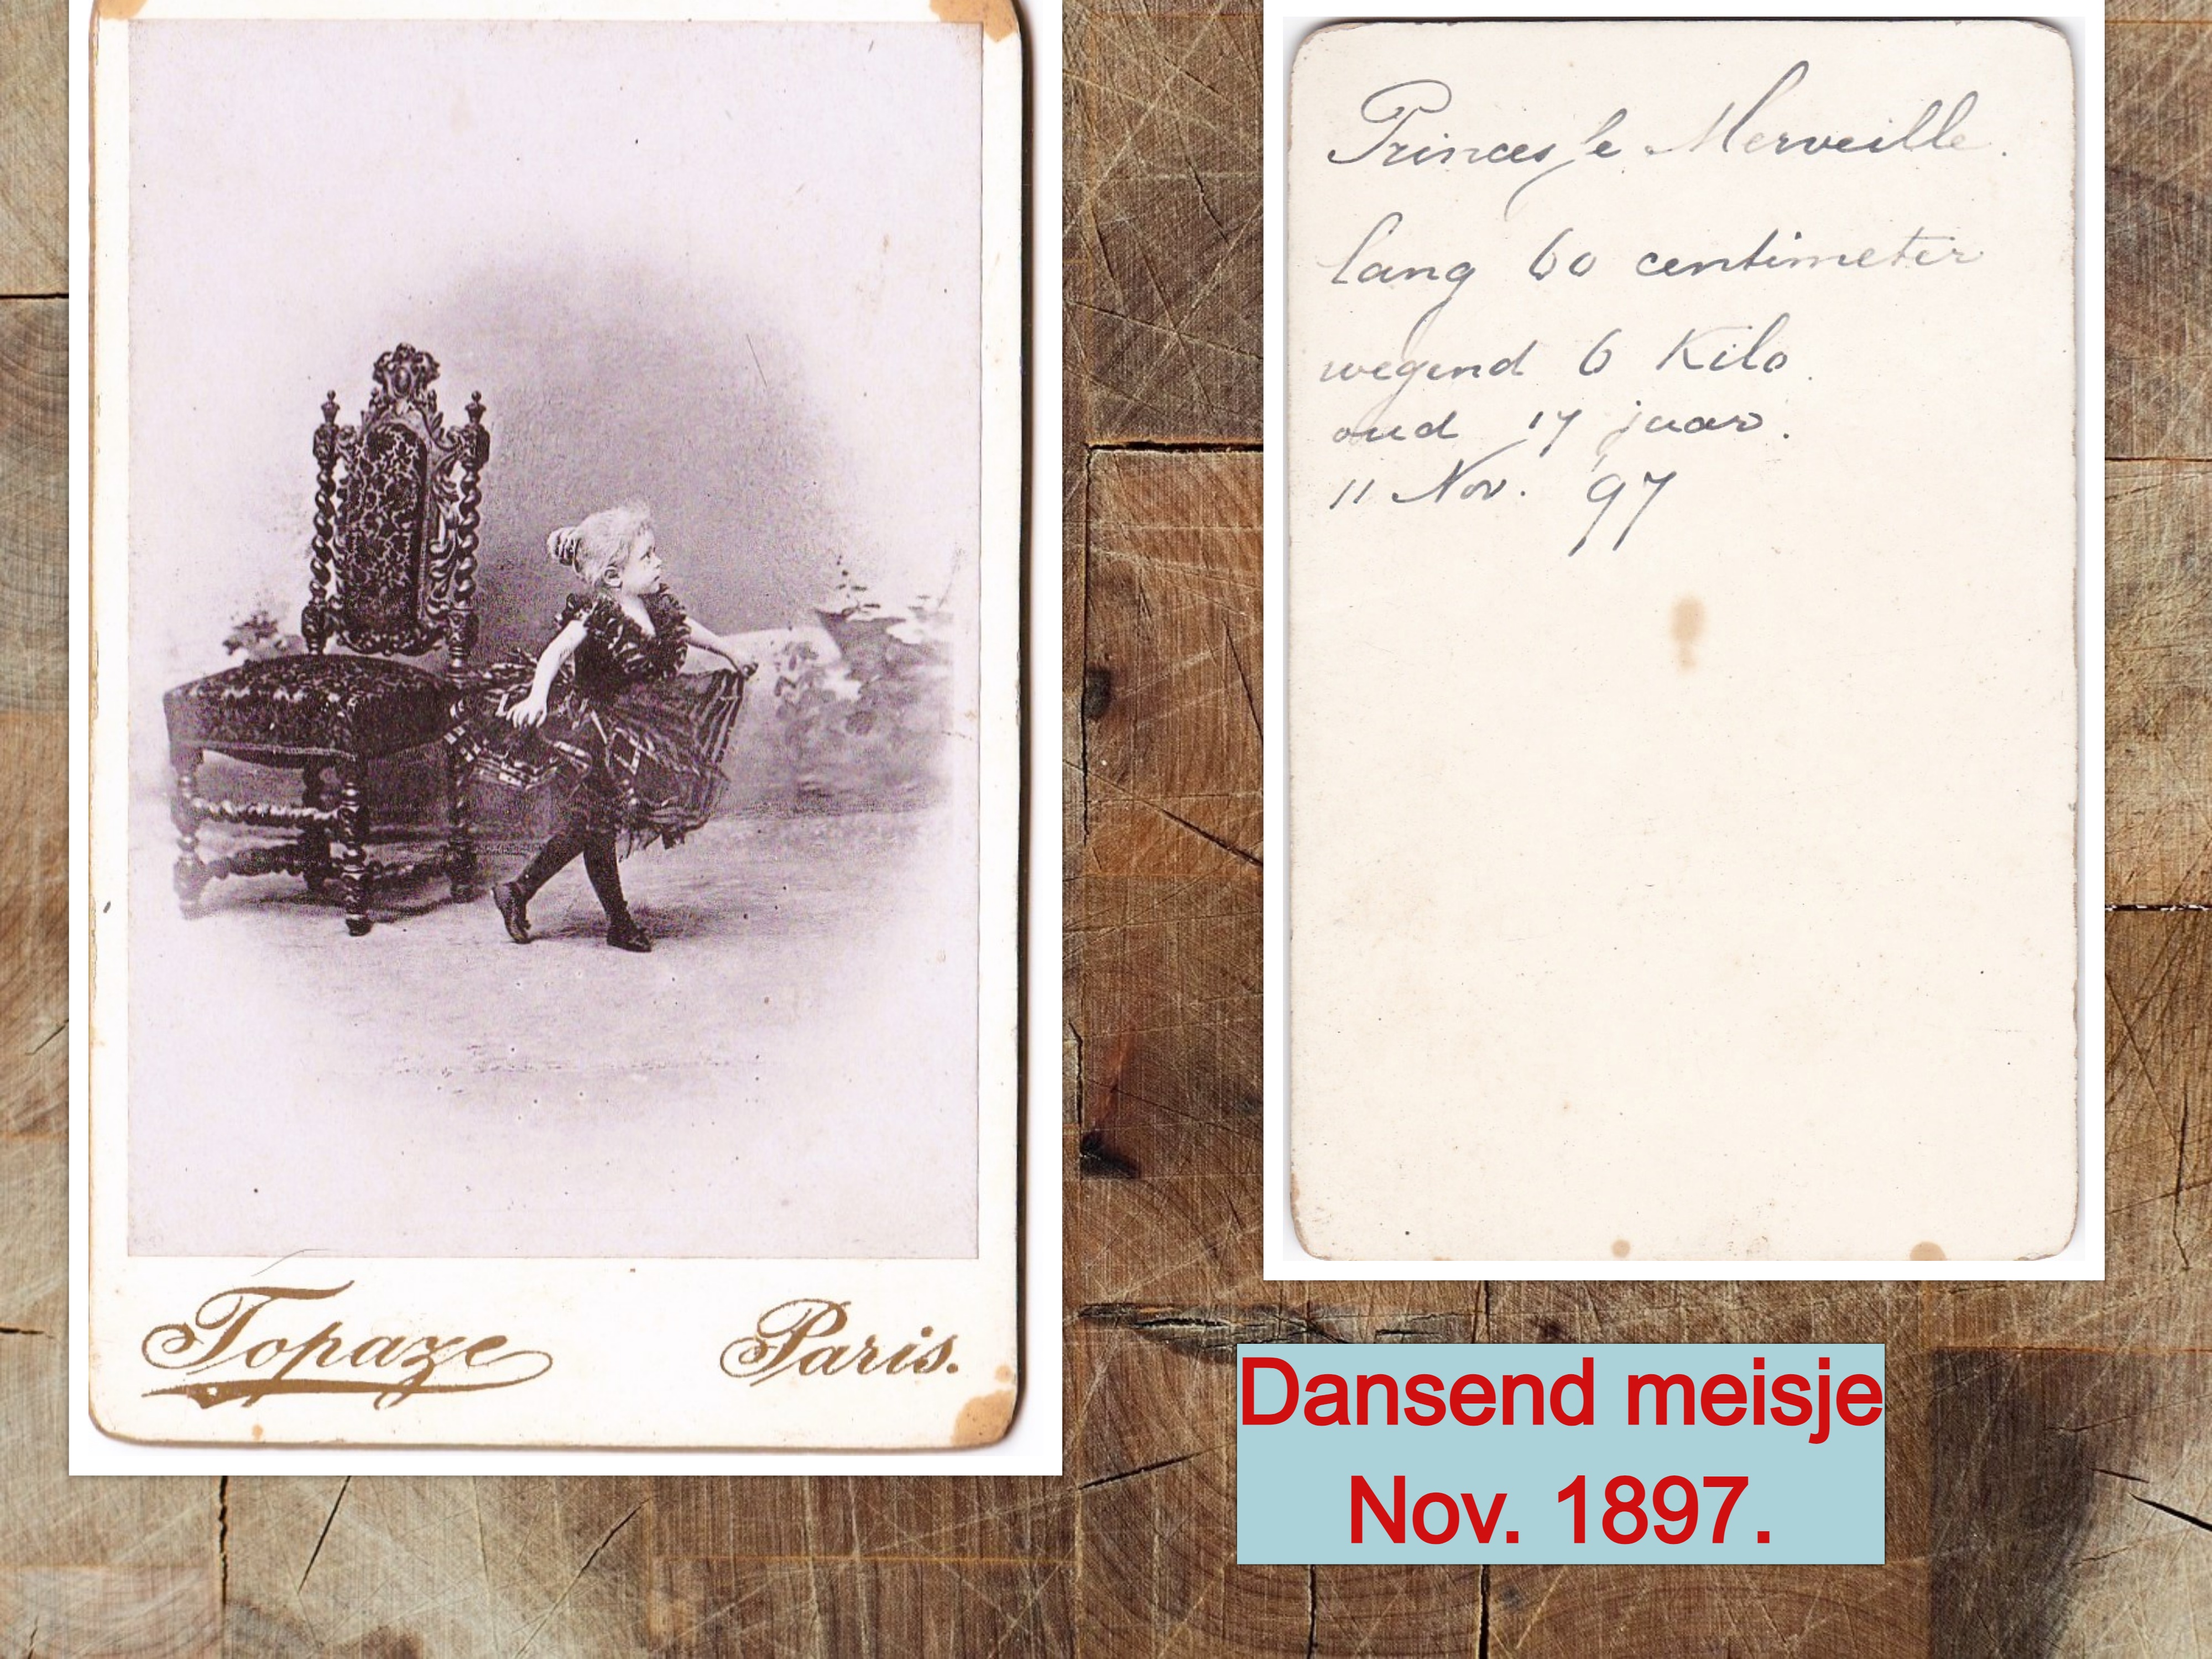 Topaze Paris.
Princesse Merveille.
lang 60 centimeter
wegend 6 Kilo.
oud 17 jaar.
11 Nov. '97
Dansend meisje
Nov. 1897.